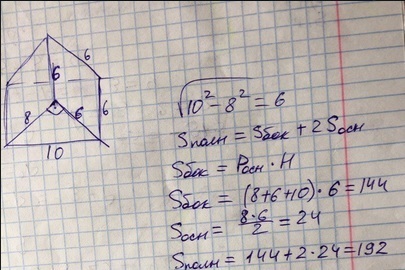 6
6
6
8
6
10
√10² - 8² = 6
Sполн = Sбок + 2 Sосн
Sбок = Pосн · H
Sбок = (8+6+10) · 6 = 144
Sосн = 8·6/2 = 24
Sполн = 144 + 2·24 = 192